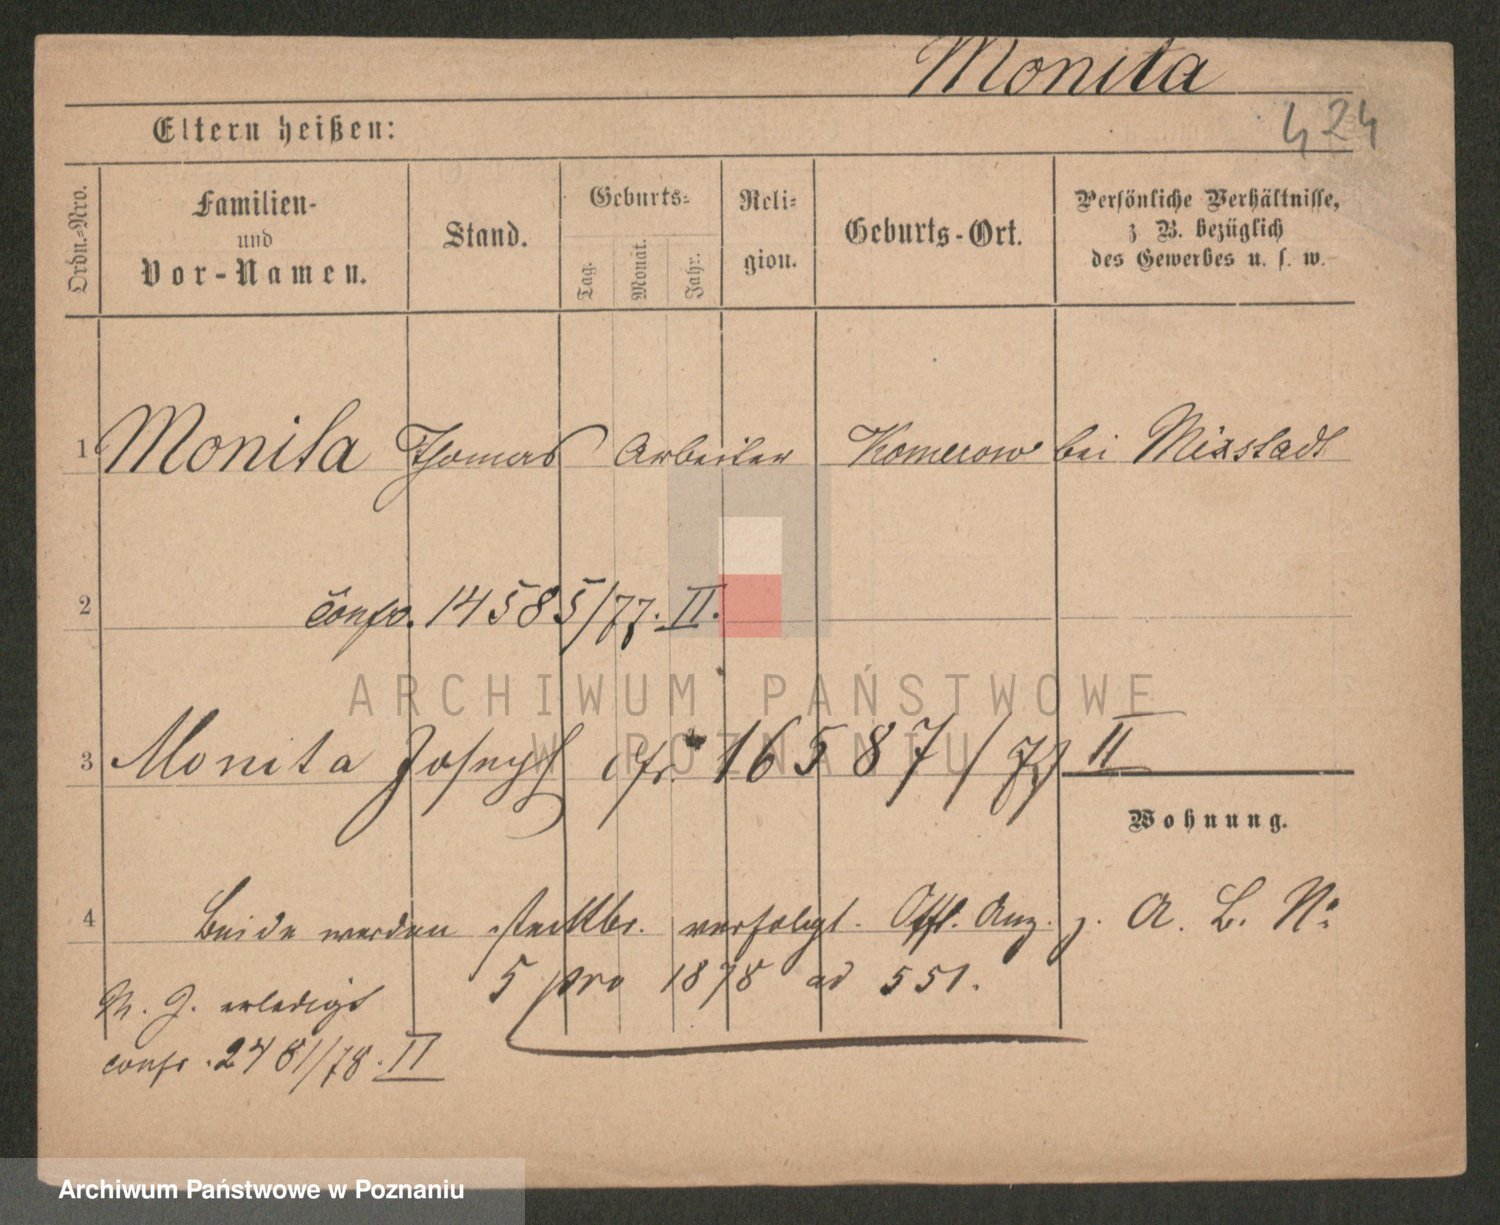 Monita
424
Eltern heißen:
Ordn.=Nro.
Familien-
und
Vor-Namen.
Stand.
Geburts=
Tag.
Monat.
Jahr.
Reli=
gion.
Geburts-Ort.
Persönliche Verhältnisse,
z B. bezüglich
des Gewerbes u. s. w.
1 Monita Thomas Arbeiter Komerow bei Mixstadt
2 confr. 14585/77. II.
3 Monita Joseph cfr. 16587/77 II
Wohnung.
4 Beide werden steckbr. verfolgt. Öffl. Anz. z. A. B. No
5 pro 1878 ad 551.
M. J. erledigt
confr. 2481/78. II
ARCHIWUM PAŃSTWOWE
W POZNANIU
Archiwum Państwowe w Poznaniu